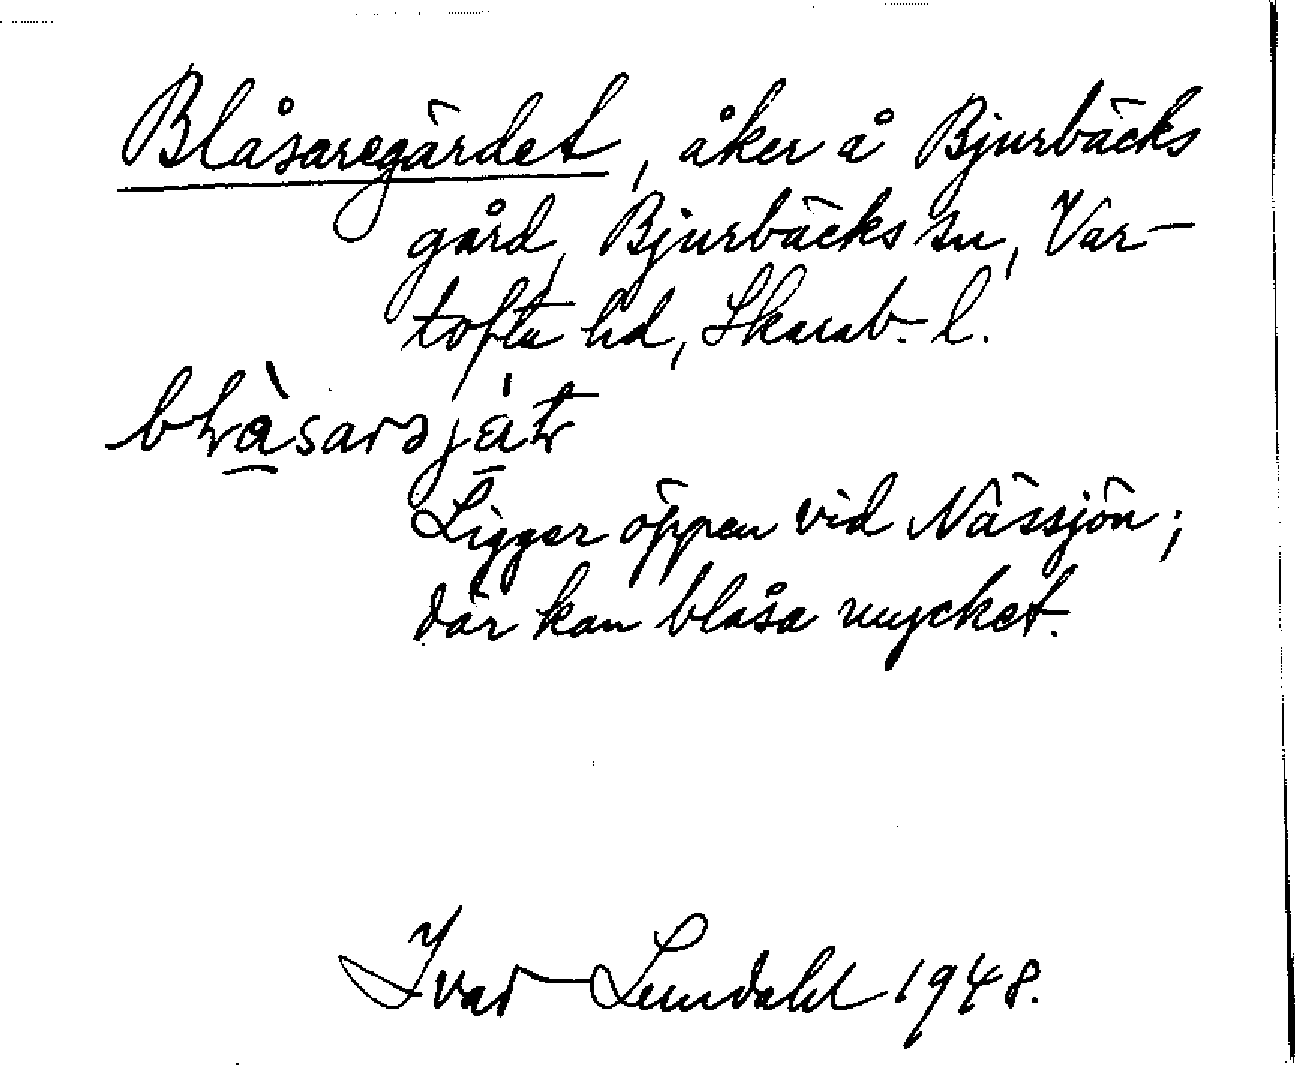 Blåsaregärdet, åker å Bjurbäcks
gård, Bjurbäcks sn, Var-
tofta hd, Skarab. l.
Ligger öppen vid Nässjön;
där kan blåsa mycket.
Ivar Lundahl 1948.